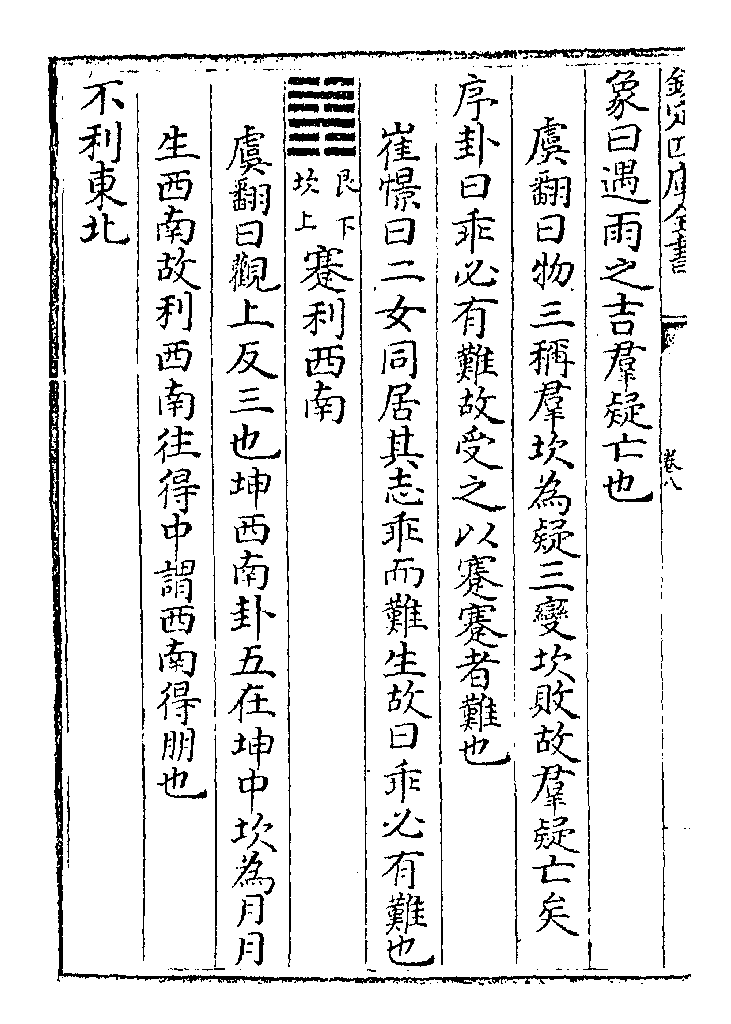 欽定四庫全書
卷八
象曰遇雨之吉羣疑亡也
虞翻曰物三稱羣坎為疑三變坎敗故羣疑亡矣
序卦曰乖必有難故受之以蹇蹇者難也
崔憬曰二女同居其志乖而難生故曰乖必有難也
艮下
坎上
蹇利西南
虞翻曰觀上反三也坤西南卦五在坤中坎為月月
生西南故利西南往得中謂西南得朋也
不利東北